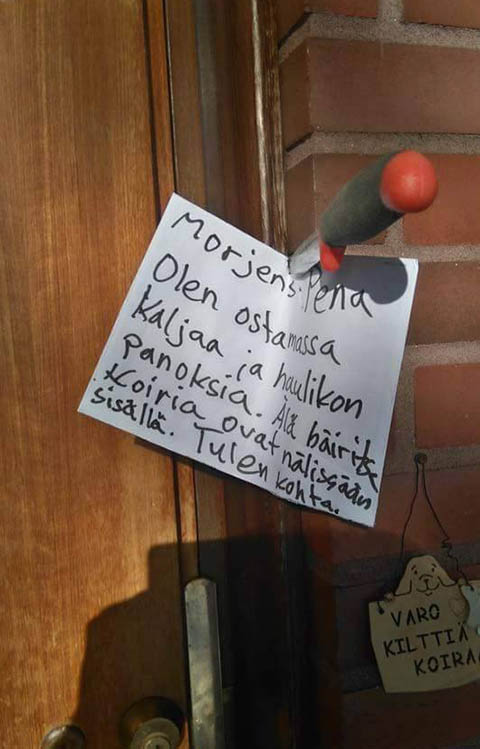 Morjens Pena
Olen ostamassa
Kaljaa ja haulikon
panoksia. Älä bäiritse
Koiria ovat nälissään
sisällä. Tulen kohta.
VARO
KILTTIÄ
KOIRAA